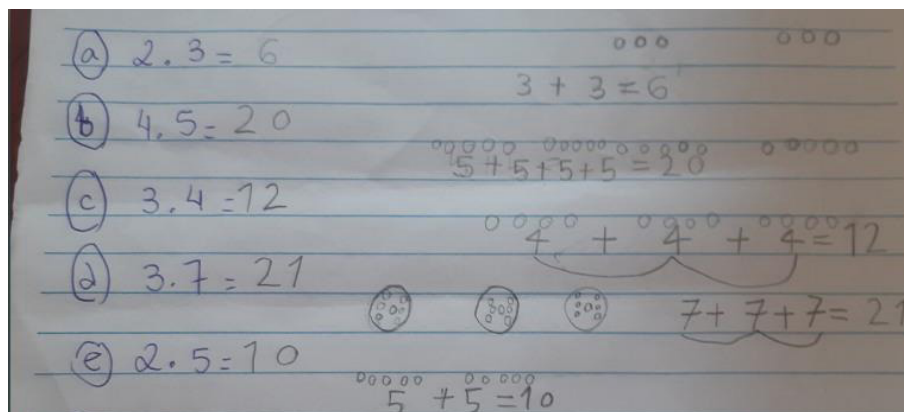 a 2 . 3 = 6
3 + 3 = 6
b 4 . 5 = 20
5 + 5 + 5 + 5 = 20
c 3 . 4 = 12
4 + 4 + 4 = 12
d 3 . 7 = 21
7 + 7 + 7 = 21
e 2 . 5 = 10
5 + 5 = 10